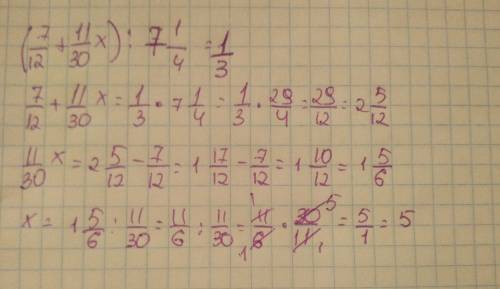 (7/12 + 11/30 x) : 7 1/4 = 1/3
7/12 + 11/30 x = 1/3 · 7 1/4 = 1/3 · 29/4 = 29/12 = 2 5/12
11/30 x = 2 5/12 - 7/12 = 1 17/12 - 7/12 = 1 10/12 = 1 5/6
x = 1 5/6 : 11/30 = 11/6 : 11/30 = 11/6 · 30/11 = 5/1 = 5